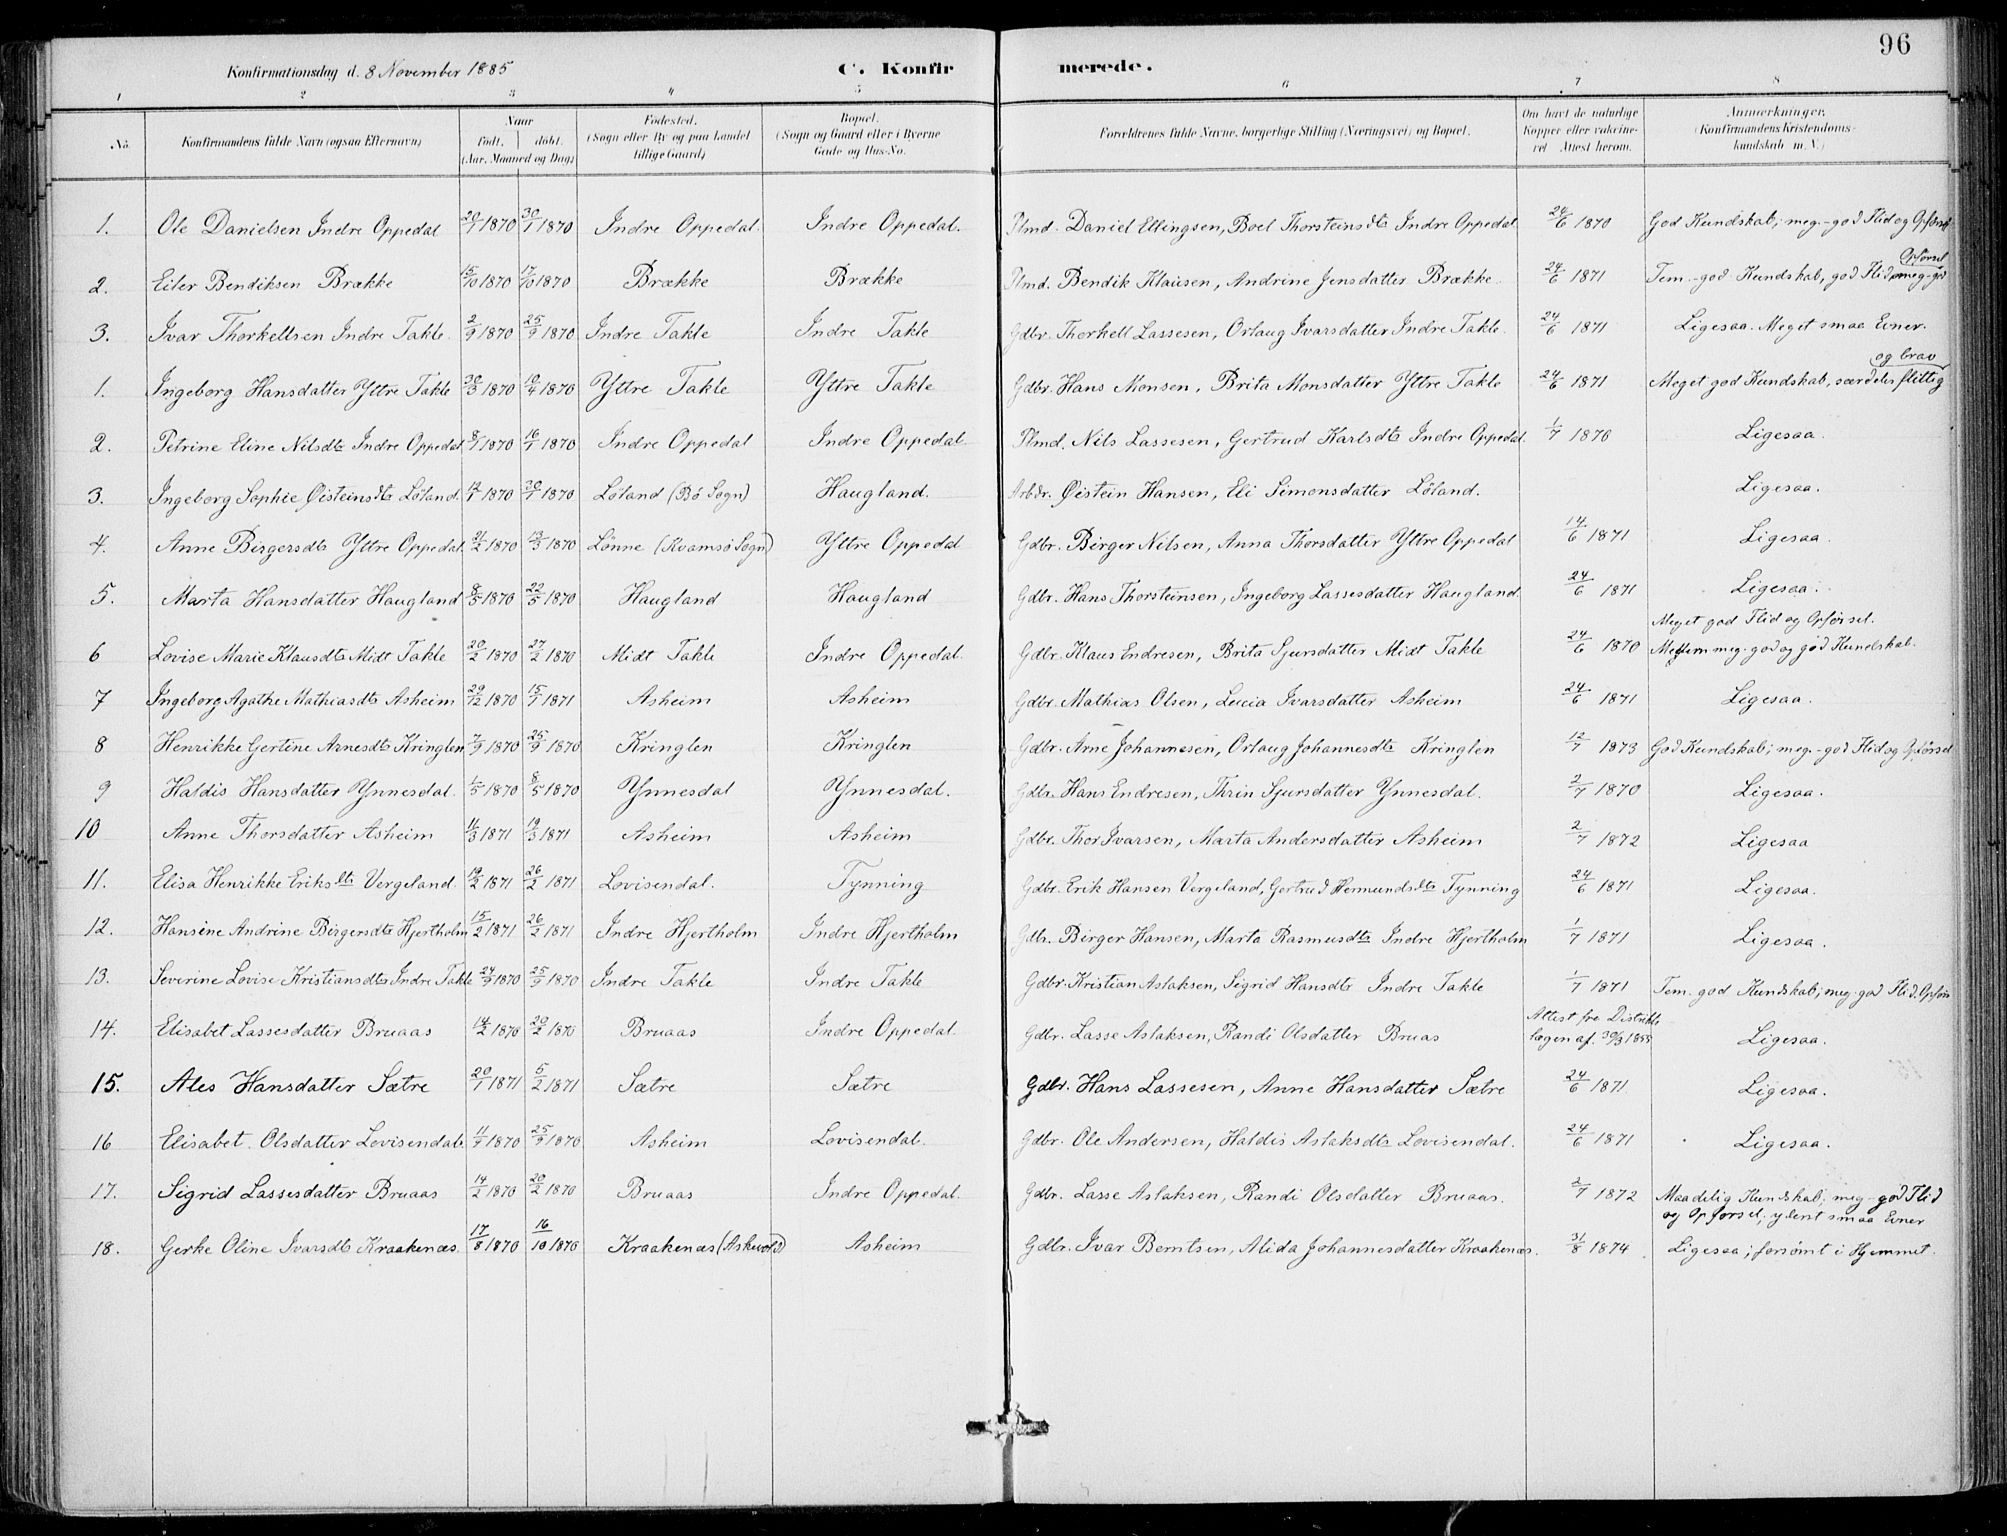 96
Konfirmationsdag d. 8 November 1885
C. Konfirmerede.
1 2 3 4 5 6 7 8
No. Konfirmandens fulde Navn (ogsaa Efternavn) Naar født, døbt. (Aar, Maaned og Dag) Fødested. (Sogn eller By og paa Landet tillige Gaard) Bopæl. (Sogn og Gaard eller i Byerne Gade og Hus-No. Forældrenes fulde Navne, borgerlige Stilling (Næringsvei) og Bopæl. Om havt de naturlige Kopper eller vakcineret Attest herom. Anmærkninger. (Konfirmandens Kristendomskundskab m. V.)
1. Ole Danielsen Indre Oppedal 20/1 1870 30/1 1870 Indre Oppedal. Indre Oppedal. Plmd. Daniel Ellingsen, Boel Thorsteinsdtr Indre Oppedal 24/6 1870 God Kundskab; meg.-god Flid og Opførsel
2. Eiler Bendiksen Brække 15/10 1870 17/10 1870 Brække Brække Plmd. Bendik Klausen, Andrine Jensdatter Brække. 24/6 1871 Tem.-god Kundskab, god Flid, meg-god Opførsel
3. Ivar Thorkellsen Indre Takle. 2/9 1870 25/9 1870 Indre Takle Indre Takle Gdbr. Thorkell Lassesen, Orlaug Ivarsdatter Indre Takle. 24/6 1871 Ligesaa. Meget smaa Evner.
1. Ingeborg Hansdatter Yttre Takle 30/3 1870 10/4 1870 Yttre Takle Yttre Takle Gdbr. Hans Monsen, Brita Monsdatter Yttre Takle 24/6 1871 Meget god Kundskab, særdeles flittig og brav
2. Petrine Eline Nilsdtr Indre Oppedal 8/1 1870 16/1 1870 Indre Oppedal Indre Oppedal Plmd. Nils Lassesen, Gertrud Karlsdtr Indre Oppedal. 1/7 1870 Ligesaa.
3. Ingeborg Sophie Øisteinsdtr Löland. 12/1 1870 30/1 1870 Löland (Bö Sogn) Haugland. Arbdr. Øistein Hansen, Eli Simonsdatter Löland. Ligesaa.
4. Anne Birgersdtr Yttre Oppedal. 21/2 1870 13/3 1870 Lönne (Kvamsö Sogn) Yttre Oppedal Gdbr. Birger Nilsen, Anna Thorsdatter Yttre Oppedal 14/6 1871 Ligesaa.
5. Marta Hansdatter Haugland 8/5 1870 22/5 1870 Haugland Haugland Gdbr. Hans Thorsteinsen, Ingeborg Lassesdatter Haugland. 24/6 1871 Ligesaa.
6 Lovise Marie Klausdtr Midt Takle 20/2 1870 27/2 1870 Midt Takle Indre Oppedal. Gdbr. Klaus Endresen, Brita Sjursdatter Midt Takle 24/6 1870 Meget god Flid og Opførsel. Mellem meg. god og god Kundskab.
7 Ingeborg Agathe Mathiasdtr Asheim 29/12 1870 15/1 1871 Asheim Asheim Gdbr. Mathias Olsen, Lucia Ivarsdatter Asheim 24/6 1871 Ligesaa.
8 Henrikke Gertine Arnesdtr Kringlen 7/9 1870 25/9 1870 Kringlen Kringlen Gdbr. Arne Johannesen, Orlaug Johannesdtr Kringlen 12/7 1873 God Kundskab; meg.-god Flid og Opførsel
9 Haldis Hansdatter Ynnesdal. 1/5 1870 8/5 1870 Ynnesdal Ynnesdal. Gdbr. Hans Endresen, Thrin Sjursdatter Ynnesdal. 2/7 1870 Ligesaa.
10 Anne Thorsdatter Asheim 11/3 1871 19/3 1871 Asheim Asheim Gdbr. Thor Ivarsen, Marta Andersdatter Asheim 2/7 1872 Ligesaa
11. Elisa Henrikke Eriksdtr Vergeland. 19/2 1871 26/2 1871 Lovisendal. Tynning Gdbr. Erik Hansen Vergeland, Gertrud Hermundsdtr Tynning 24/6 1871 Ligesaa.
12. Hansine Andrine Birgersdtr Hjertholm 15/2 1871 26/2 1871 Indre Hjertholm Indre Hjertholm Gdbr. Birger Hansen, Marta Rasmusdtr Indre Hjertholm 1/7 1871 Ligesaa.
13. Severine Lovise Kristiansdtr Indre Takle 24/9 1870 25/9 1870 Indre Takle Indre Takle Gdbr. Kristian Aslaksen, Sigrid Hansdtr Indre Takle 1/7 1871 Tem. god Kundskab; meg. god Flid. Opførs
14. Elisabet Lassesdatter Bruaas 14/2 1870 20/2 1870 Bruaas Indre Oppedal Gdbr. Lasse Aslaksen, Randi Olsdatter Bruas Attest fra Distriktslægen af 30/3 1885 Ligesaa.
15. Ales Hansdatter Sætre 20/1 1871 5/2 1871 Sætre Sætre Gdbr. Hans Lassesen, Anne Hansdatter Sætre 24/6 1871 Ligesaa.
16 Elisabet Olsdatter Lovisendal. 11/9 1870 25/9 1870 Asheim Lovisendal. Gdbr. Ole Andersen, Haldis Aslaksdtr Lovisendal. 24/6 1871 Ligesaa.
17. Sigrid Lassesdatter Bruaas 14/2 1870 20/2 1870 Bruaas Indre Oppedal. Gdbr. Lasse Aslaksen, Randi Olsdatter Bruaas. 2/7 1872 Maadelig Kundskab; meg-god Flid og Opførsel; yderst smaa Evner
18. Gerke Oline Ivarsdtr Kraakenæs. 17/8 1870 16/10 1870 Kraakenæs (Askevold) Asheim Gdbr. Ivar Berntsen, Alida Johannesdatter Kraakenæs. 31/8 1874 Ligesaa; forsömt i Hjemmet.